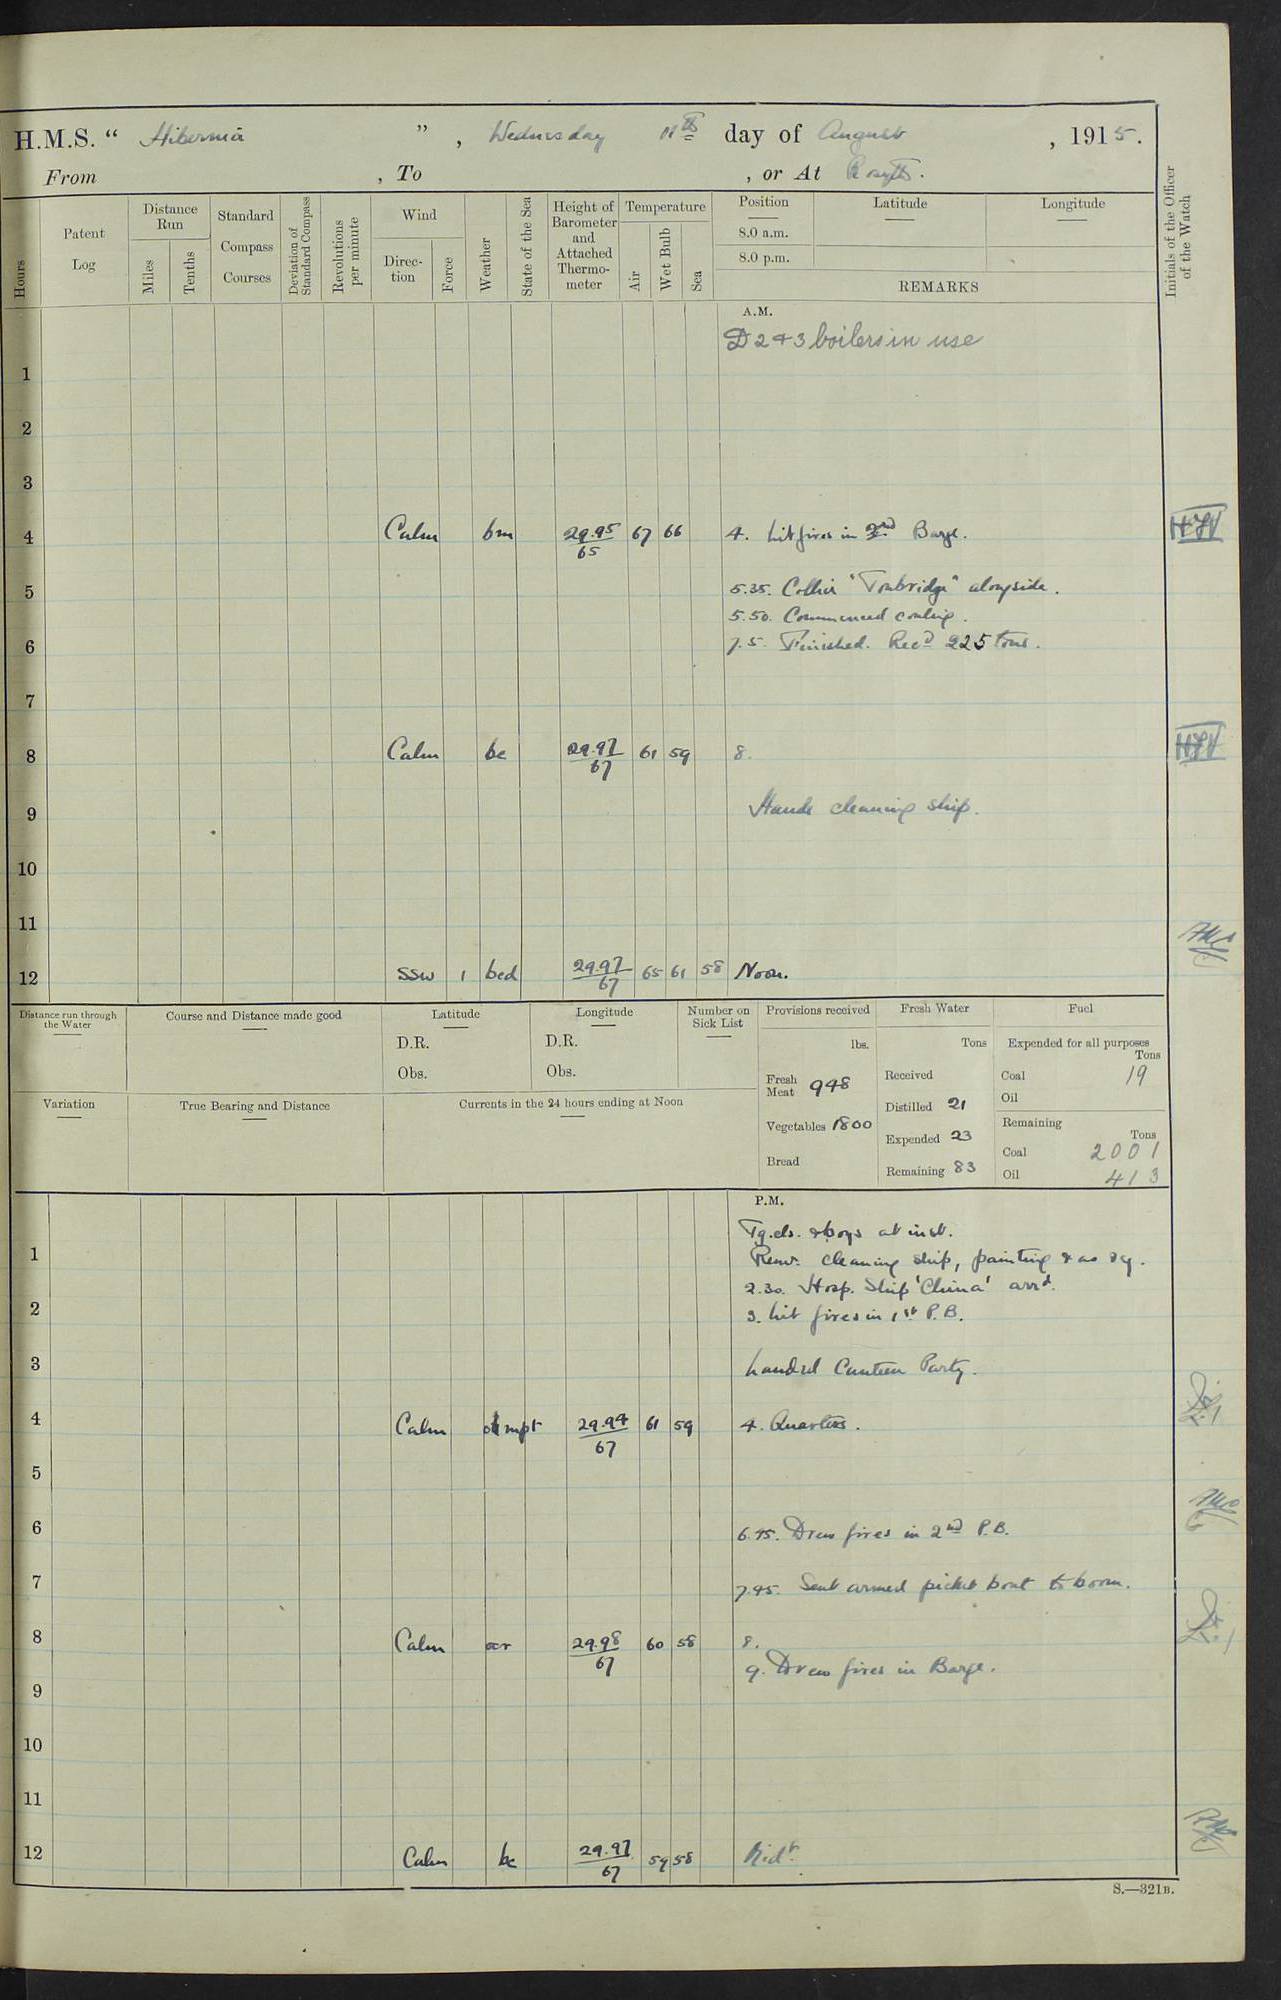 H.M.S. “ Hibernia ” , Wednesday 11th day of August , 1915.
From , To , or At Rosyth.
Hours
Patent Log
Distance Run
Miles
Tenths
Standard Compass Courses
Deviation of Standard Compass
Revolutions per minute
Wind
Direc-tion
Force
Weather
State of the Sea
Height of Barometer and Attached Thermo-meter
Temperature
Air
Wet Bulb
Sea
Position
8.0 a.m.
8.0 p.m.
Latitude
Longitude
REMARKS
Initials of the Officer of the Watch
A.M.
D 2 & 3 boilers in use
1
2
3
4 Calm bm 29.95/65 67 66 4. Lit fires in 2nd Barge.
5 5.35. Collier "Tonbridge" alongside.
5.50. Commenced coaling.
6 7.5. Finished. Recd 225 tons.
7
8 Calm bc 29.97/67 61 59 8.
9 Hands cleaning ship.
10
11
12 SSW 1 bcd 29.97/67 65 61 58 Noon.
Distance run through the Water
Course and Distance made good
Latitude
D.R.
Obs.
Longitude
D.R.
Obs.
Number on Sick List
Provisions received
lbs.
Fresh Meat 948
Vegetables 1800
Bread
Fresh Water
Tons
Received
Distilled 21
Expended 23
Remaining 83
Fuel
Expended for all purposes
Tons
Coal 19
Oil
Remaining
Tons
Coal 2001
Oil 413
Variation
True Bearing and Distance
Currents in the 24 hours ending at Noon
P.M.
Tg.cls. & boys at inst.
1 Remr. cleaning ship, painting & as rq.
2.30. Hosp. Ship 'China' arrd.
2 3. Lit fires in 1st P.B.
3 Landed Canteen Party.
4 Calm 29.94/67 61 59 4. Quarters.
5
6 6.45. Drew fires in 2nd P.B.
7 7.45. Sent armed picket boat to boom.
8 Calm ocr 29.98/67 60 58 8.
9. Drew fires in Barge.
9
10
11
12 Calm bc 29.97/67 59 58 Midt.
S.—321B.